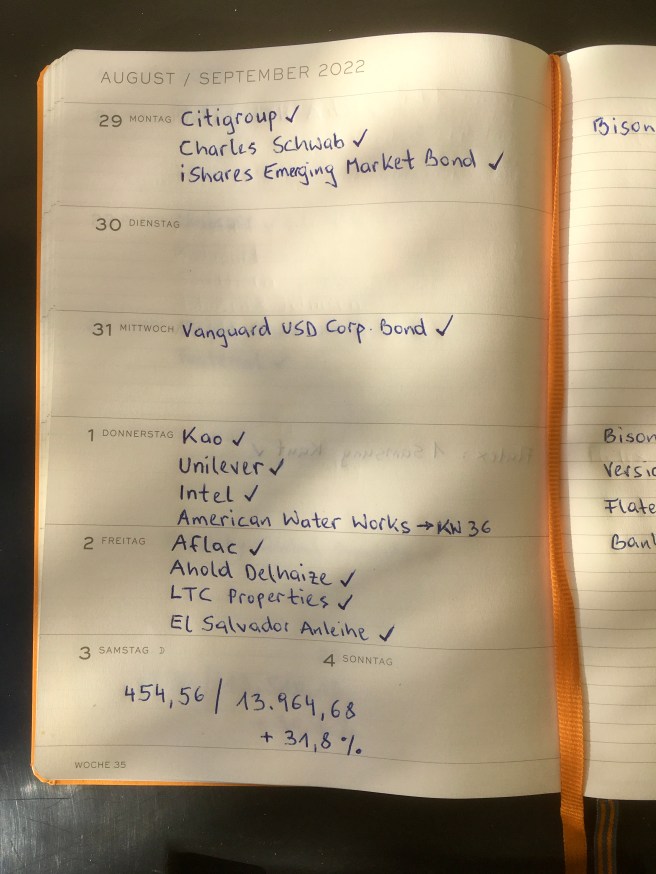 AUGUST / SEPTEMBER 2022
29 MONTAG Citigroup ✓
Charles Schwab ✓
iShares Emerging Market Bond ✓
30 DIENSTAG
31 MITTWOCH Vanguard USD Corp. Bond ✓
1 DONNERSTAG Kao ✓
Unilever ✓
Intel ✓
American Water Works → KW 36
2 FREITAG Aflac ✓
Ahold Delhaize ✓
LTC Properties ✓
El Salvador Anleihe ✓
3 SAMSTAG
4 SONNTAG
454,56 / 13.964,68
+ 31,8 %.
WOCHE 35
Bison
Bison